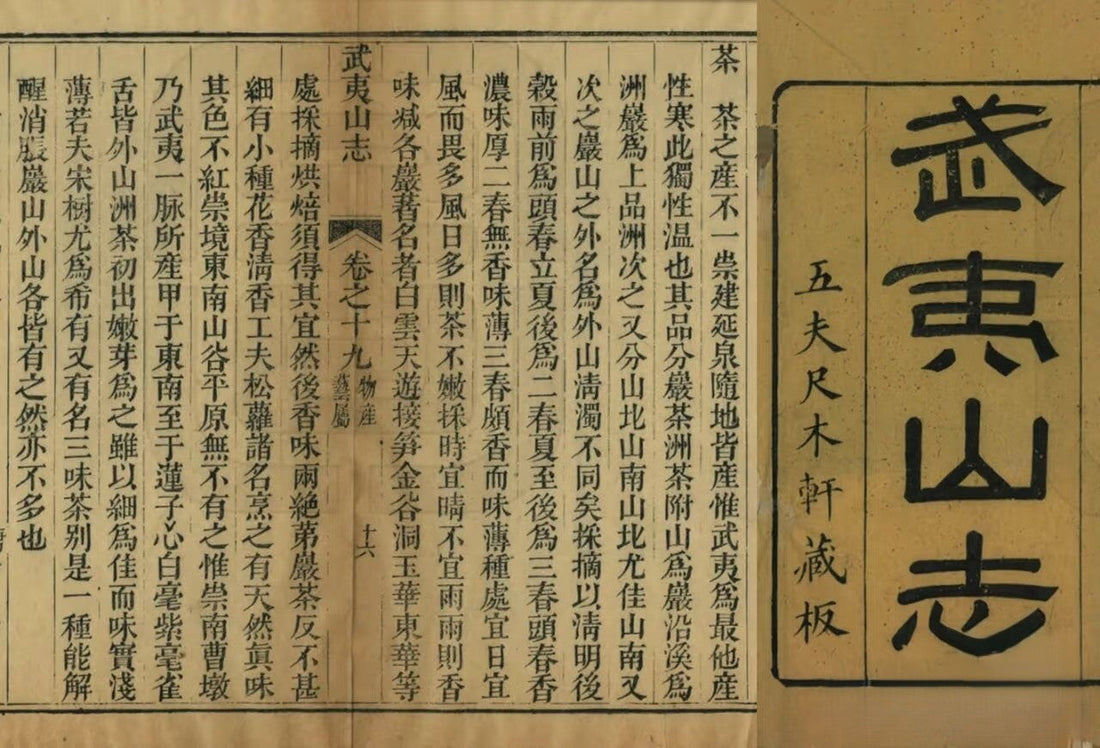 武夷山志
五夫尺木軒藏板
茶　茶之產不一崇建延泉隨地皆產惟武夷爲最他產
性寒此獨性温也其品分巖茶洲茶附山爲巖沿溪爲
洲巖爲上品洲次之又分山北山南山北尤佳山南又
次之巖山之外名爲外山清濁不同矣採摘以清明後
穀雨前爲頭春立夏後爲二春夏至後爲三春頭春香
濃味厚二春無香味薄三春頗香而味薄種處宜日宜
風而畏多風日多則茶不嫩採時宜晴不宜雨雨則香
味减各巖著名者白雲天遊接笋金谷洞玉華東華等
武夷山志
卷之十九
物產
藝屬
十六
處採摘烘焙須得其宜然後香味兩絕第巖茶反不甚
細有小種花香清香工夫松蘿諸名烹之有天然真味
其色不紅崇境東南山谷平原無不有之惟崇南曹墩
乃武夷一脉所產甲于東南至于蓮子心白毫紫毫雀
舌皆外山洲茶初出嫩芽爲之雖以細爲佳而味實淺
薄若夫宋樹尤爲希有又有名三味茶别是一種能解
酲消脹巖山外山各皆有之然亦不多也